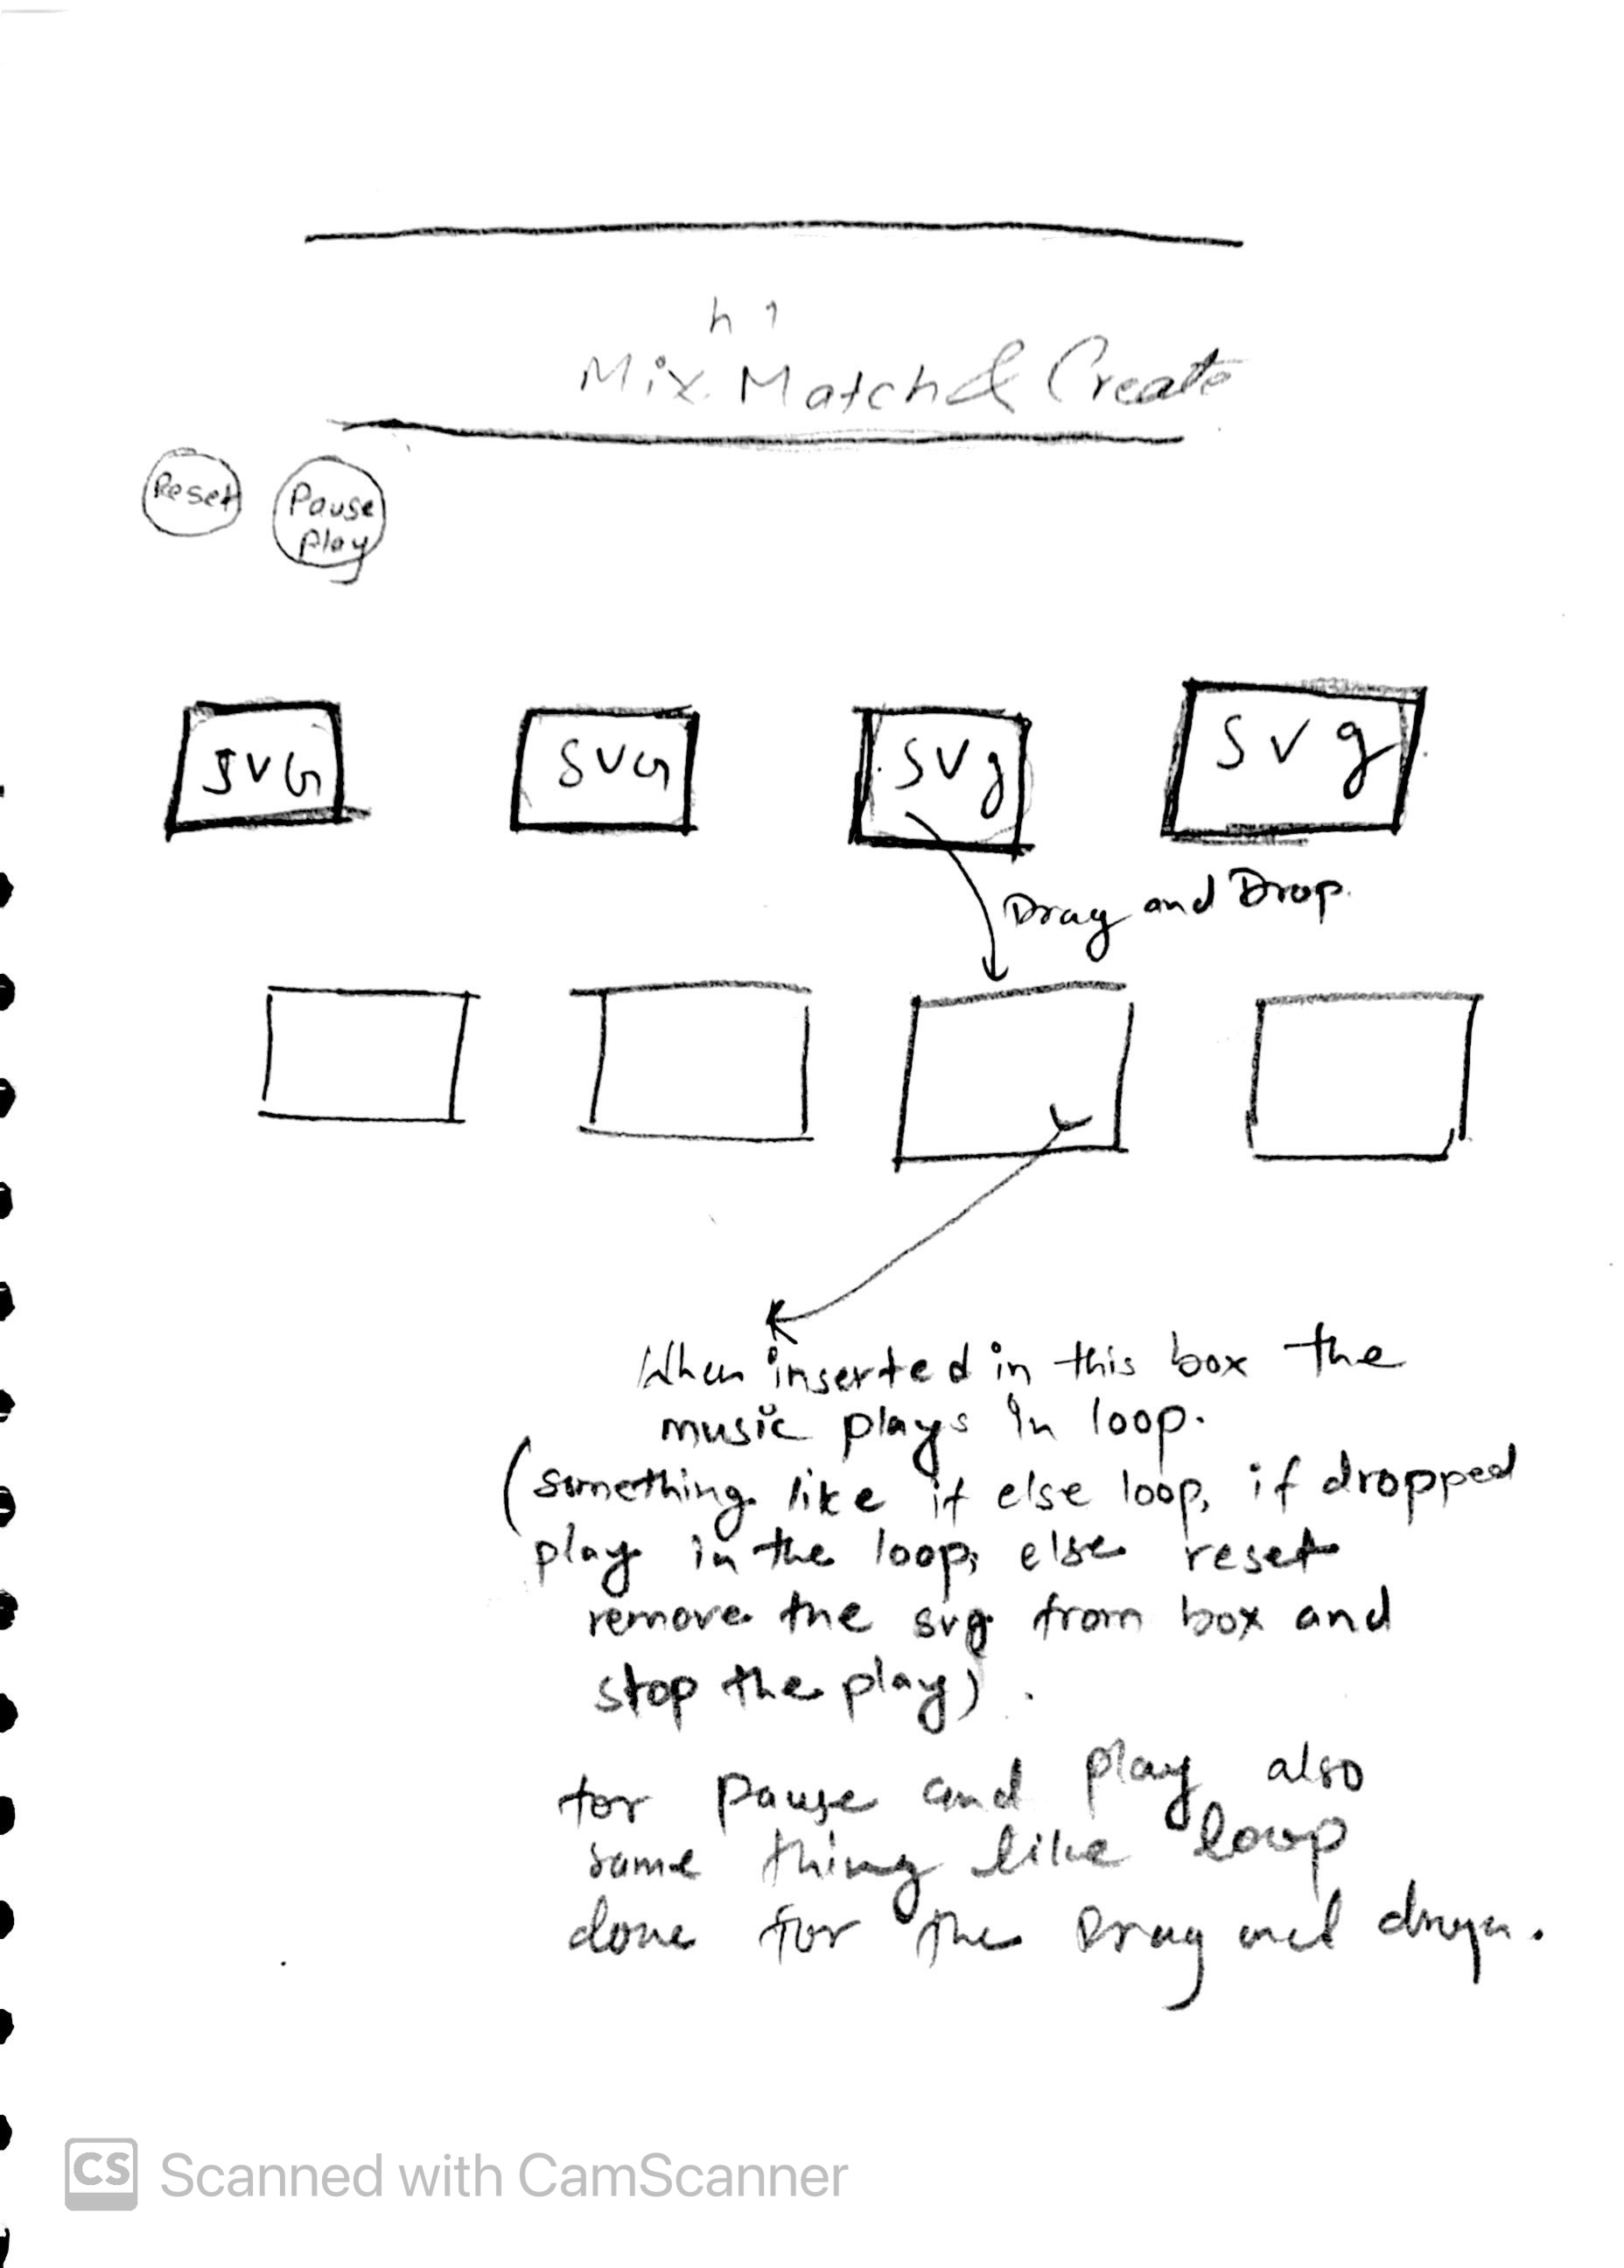 h1
Mix Match & Create
Reset
Pause
play
SVG
SVG
SVg
SVg
Drag and Drop.
When inserted in this box the
music plays in loop.
(something like if else loop, if dropped
play in the loop, else reset
remove the svg from box and
stop the play).
for pause and play also
same thing like loop
done for the Drag and
CS Scanned with CamScanner